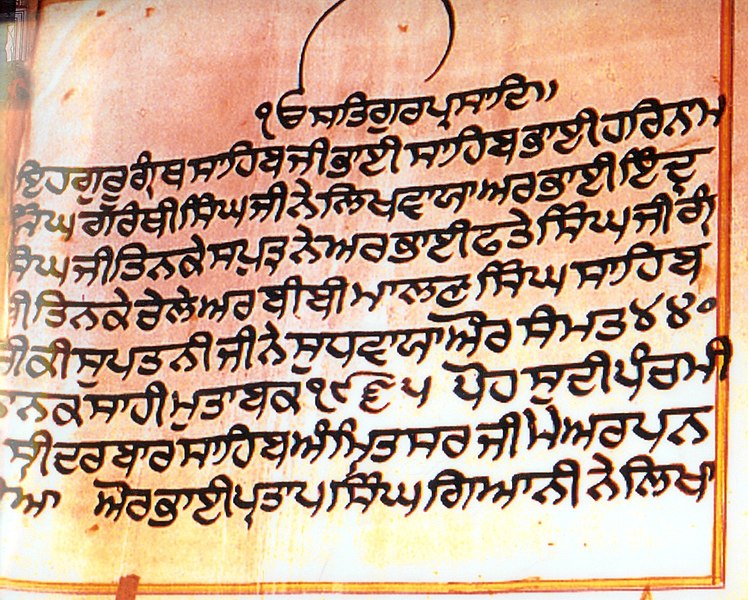 ੴ ਸਤਿਗੁਰਪ੍ਰਸਾਦਿ॥
ਇਹ ਗੁਰੂ ਗ੍ਰੰਥ ਸਾਹਿਬ ਜੀ ਭਾਈ ਸਾਹਿਬ ਭਾਈ ਹਰਿਨਾਮ
ਸਿੰਘ ਗਰੰਥੀ ਸਿੰਘ ਜੀ ਨੇ ਲਿਖਵਾਯਾ ਅਰ ਭਾਈ ਇੰਦ੍ਰ
ਸਿੰਘ ਜੀ ਤਿਨਕੇ ਸਪੁਤ੍ਰ ਨੇ ਅਰ ਭਾਈ ਫਤੇ ਸਿੰਘ ਜੀ ਗ੍ਰੰ
ਜੀ ਤਿਨਕੇ ਚੇਲੇ ਅਰ ਬੀਬੀ ਮਾਲਣ ਸਿੰਘ ਸਾਹਿਬ
ਜੀ ਕੀ ਸੁਪਤਨੀ ਜੀ ਨੇ ਸੁਧਵਾਯਾ ਔਰ ਸੰਮਤ ੪੪੦
ਨਾਨਕਸਾਹੀ ਮੁਤਾਬਕ ੧੯੬੫ ਪੋਹ ਸੁਦੀ ਪੰਚਮੀ
ਸ੍ਰੀ ਦਰਬਾਰ ਸਾਹਿਬ ਅੰਮ੍ਰਿਤਸਰ ਜੀ ਮੇ ਅਰਪਨ
ਕੀਆ ਔਰ ਭਾਈ ਪ੍ਰਤਾਪ ਸਿੰਘ ਗਿਆਨੀ ਨੇ ਲਿਖਾ